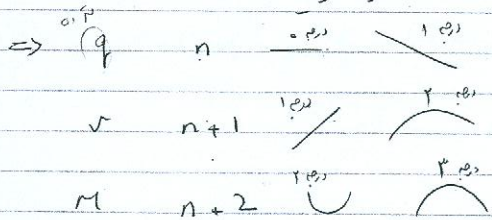 => q n درجه ۰ درجه ۱
v n+1 درجه ۱ درجه ۲
M n+2 درجه ۲ درجه ۳